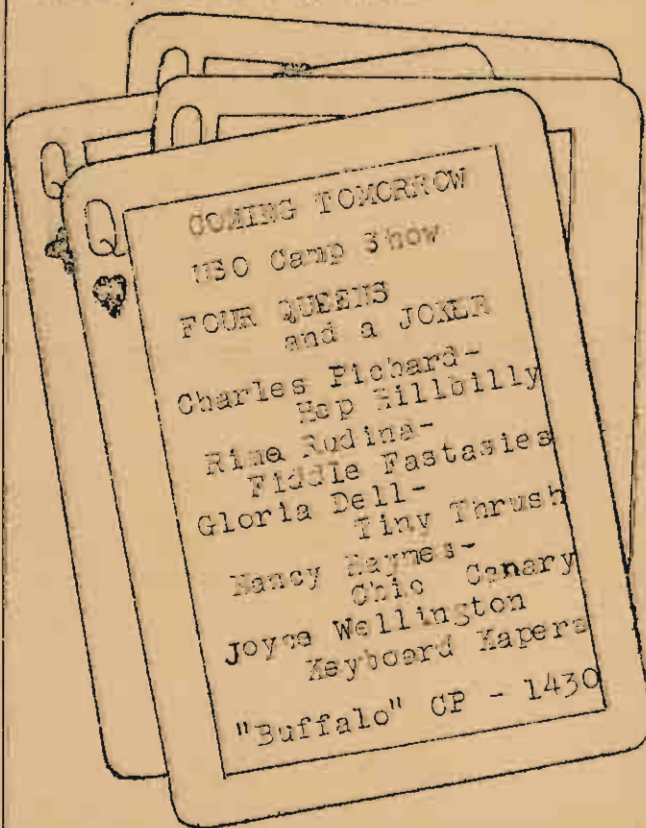 Q
Q
Q
Q
COMING TOMORROW
USO Camp Show
FOUR QUEENS
and a JOKER
Charles Pichard-
Hep Hillbilly
Rima Rudina-
Fiddle Fastasies
Gloria Dell-
Tiny Thrush
Nancy Haynes-
Chic Canary
Joyce Wellington
Keyboard Kapers
"Buffalo" CP - 1430